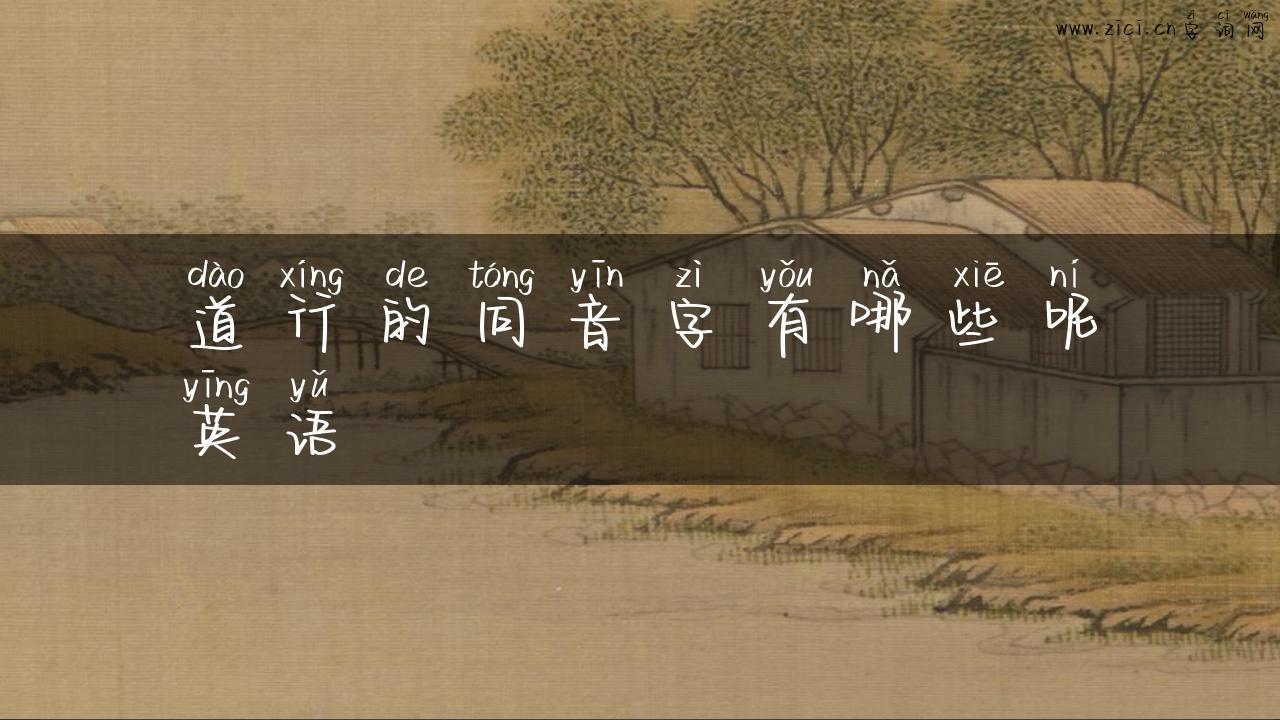 zì cí wǎng
www.zici.cn 字词网
dào xíng de tóng yīn zì yǒu nǎ xiē ní
道行的同音字有哪些呢
yīng yǔ
英语